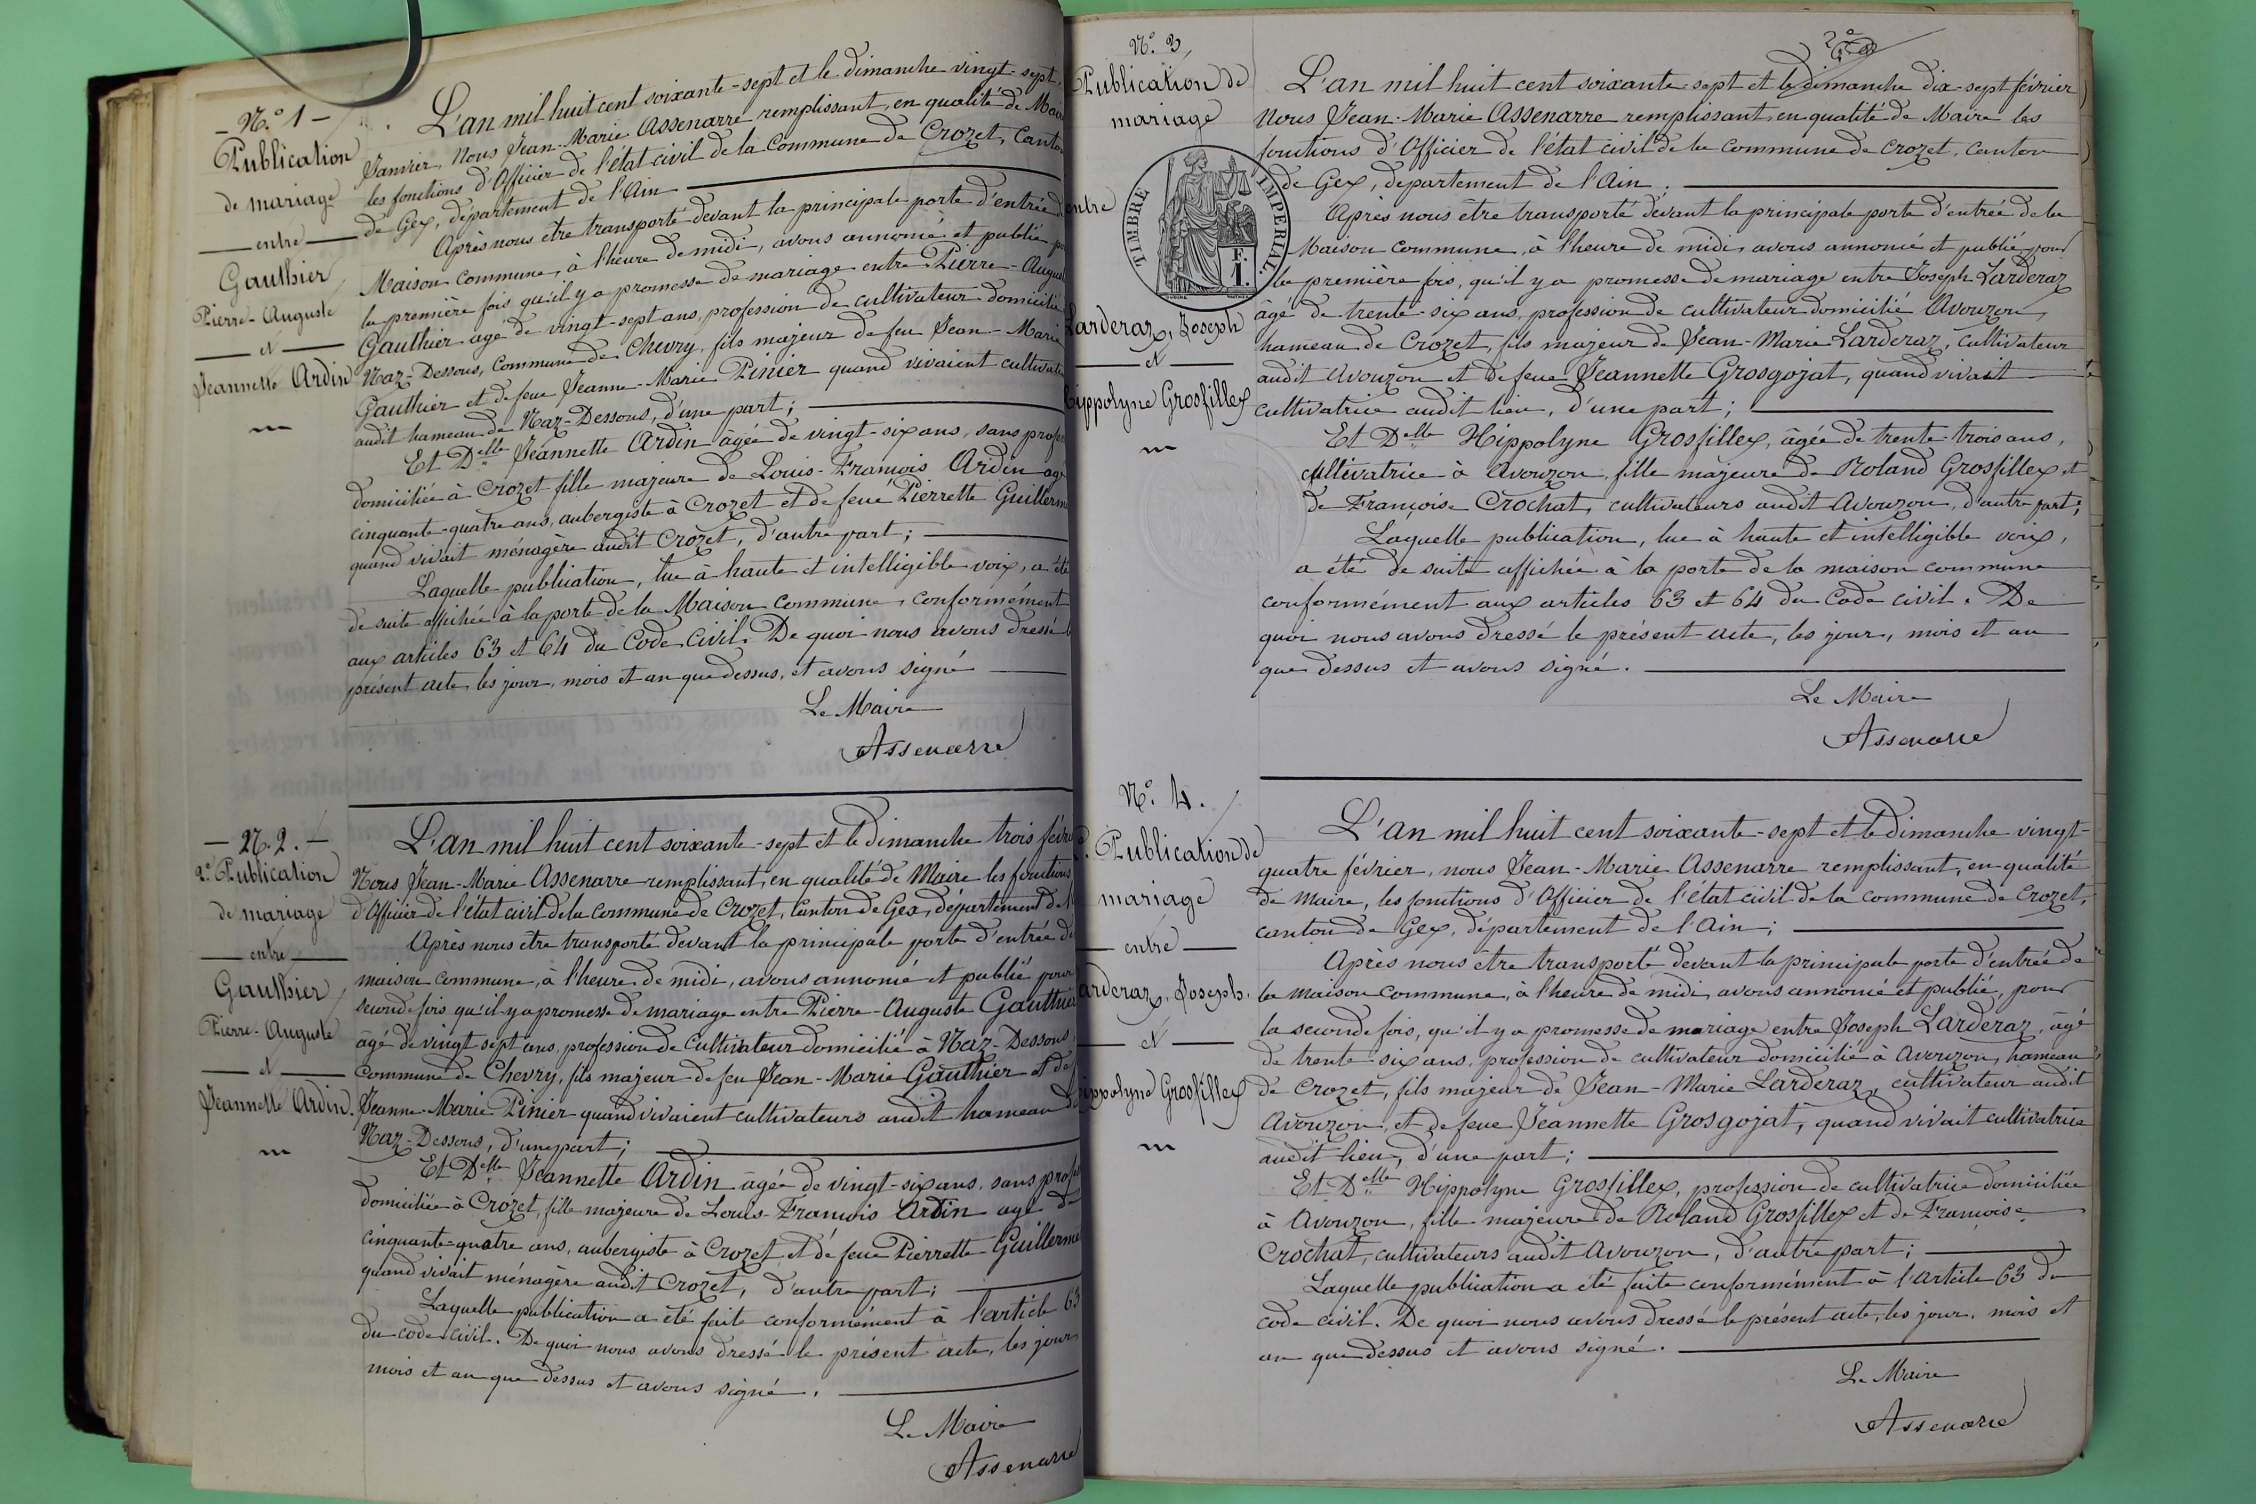 - N.° 1 -
Publication
de mariage
entre
Gauthier
Pierre-Auguste
et
Jeannette Ardin
L'an mil huit cent soixante-sept et le dimanche vingt-sept
Janvier, Nous Jean-Marie Assenarre remplissant, en qualité de
les fonctions d'Officier de l'état civil de la Commune de Crozet, Canton
de Gex, département de l'Ain
Après nous être transporté devant la principale porte d'entrée
Maison commune, à l'heure de midi, avons annoncé et publié
la première fois qu'il y a promesse de mariage entre Pierre-
Gauthier âgé de vingt-sept ans, profession de cultivateur domicilié
Naz-Dessous, Commune de Chevry, fils majeur de feu Jean-Marie
Gauthier et de feue Jeanne-Marie Pinier quand vivaient
audit hameau de Naz-Dessous, d'une part;
Et Delle Jeannette Ardin âgée de vingt-six ans, sans
domiciliée à Crozet fille majeure de Louis-François Ardin âgé
cinquante-quatre ans, aubergiste à Crozet et de feue Pierrette
quand vivait ménagère audit Crozet, d'autre part;
Laquelle publication, lue à haute et intelligible voix, a été
de suite affichée à la porte de la Maison commune, conformément
aux articles 63 et 64 du Code Civil. De quoi nous avons dressé
présent acte, les jour, mois et an que dessus, et avons signé
Le Maire
Assenarre
- N. 2. -
2e Publication
de mariage
entre
Gauthier
Pierre-Auguste
et
Jeannette Ardin
L'an mil huit cent soixante-sept et le Dimanche trois
Nous Jean-Marie Assenarre remplissant, en qualité de Maire les fonctions
d'Officier de l'état civil de la commune de Crozet, Canton de Gex, département de
Après nous être transporté devant la principale porte d'entrée de
maison commune, à l'heure de midi, avons annoncé et publié pour
seconde fois qu'il y a promesse de mariage entre Pierre-Auguste Gauthier
âgé de vingt sept ans, profession de Cultivateur domicilié à Naz-Dessous
Commune de Chevry, fils majeur de feu Jean-Marie Gauthier et de
Jeanne-Marie Pinier quand vivaient cultivateurs audit hameau
Naz-Dessous, d'une part;
Et Delle Jeannette Ardin âgée de vingt-six ans, sans
domiciliée à Crozet, fille majeure de Louis-François Ardin âgé de
cinquante-quatre ans, aubergiste à Crozet et de feue Pierrette
quand vivait ménagère audit Crozet, d'autre part;
Laquelle publication a été faite conformément à l'article 63
du code civil. De quoi nous avons dressé le présent acte, les jour
mois et an que dessus et avons signé.
Le Maire
Assenarre
N.° 3
Publication de
mariage
entre
TIMBRE IMPERIAL.
F.
1.
Larderaz, Joseph
et
Hippolyne Grosfillex
L'an mil huit cent soixante-sept et le dimanche dix-sept février
Nous Jean-Marie Assenarre remplissant, en qualité de Maire les
fonctions d'Officier de l'état civil de la commune de Crozet, canton
de Gex, département de l'Ain;
Après nous être transporté devant la principale porte d'entrée de la
Maison commune, à l'heure de midi, avons annoncé et publié pour
la première fois, qu'il y a promesse de mariage entre Joseph Larderaz
âgé de trente-six ans, profession de cultivateur domicilié Avouzon,
hameau de Crozet, fils majeur de Jean-Marie Larderaz, cultivateur
audit Avouzon et de feue Jeannette Grosgojat, quand vivait
cultivatrice audit lieu, d'une part;
Et Delle Hippolyne Grosfillex, âgée de trente-trois ans,
cultivatrice à Avouzon, fille majeure de Roland Grosfillex et
de Françoise Crochat, cultivateurs audit Avouzon, d'autre part;
Laquelle publication, lue à haute et intelligible voix,
a été de suite affichée à la porte de la maison commune
conformément aux articles 63 et 64 du Code civil. De
quoi nous avons dressé le présent acte, les jour, mois et an
que dessus et avons signé.
Le Maire
Assenarre
N.° 4.
Publication de
mariage
entre
arderaz, Joseph.
et
ippolyne Grosfillex
L'an mil huit cent soixante-sept et le Dimanche vingt-
quatre février, nous Jean-Marie Assenarre remplissant, en qualité
de Maire, les fonctions d'Officier de l'état civil de la commune de Crozet,
canton de Gex, département de l'Ain;
Après nous être transporté devant la principale porte d'entrée de
la Maison commune, à l'heure de midi, avons annoncé et publié, pour
la seconde fois, qu'il y a promesse de mariage entre Joseph Larderaz, âgé
de trente-six ans, profession de cultivateur domicilié à Avouzon, hameau
de Crozet, fils majeur de Jean-Marie Larderaz, cultivateur audit
Avouzon, et de feue Jeannette Grosgojat, quand vivait cultivatrice
audit lieu, d'une part;
Et Delle Hippolyne Grosfillex, profession de cultivatrice domiciliée
à Avouzon, fille majeure de Roland Grosfillex et de Françoise
Crochat, cultivateurs audit Avouzon, d'autre part;
Laquelle publication a été faite conformément à l'article 63 du
code civil. De quoi nous avons dressé le présent acte, les jour, mois et
an que dessus et avons signé.
Le Maire
Assenarre